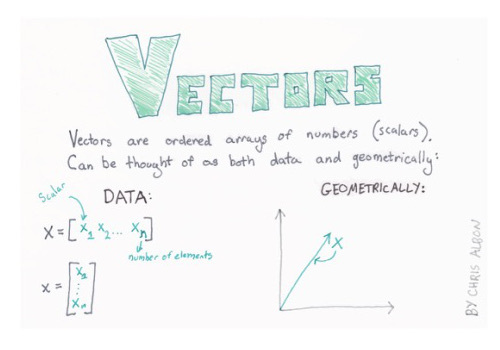 VECTORS
Vectors are ordered arrays of numbers (scalars).
Can be thought of as both data and geometrically:
Scalar
DATA:
X = [X₁ X₂... Xₙ]
number of elements
X = [X₁
⋮
Xₙ]
GEOMETRICALLY:
X
BY CHRIS ALBON